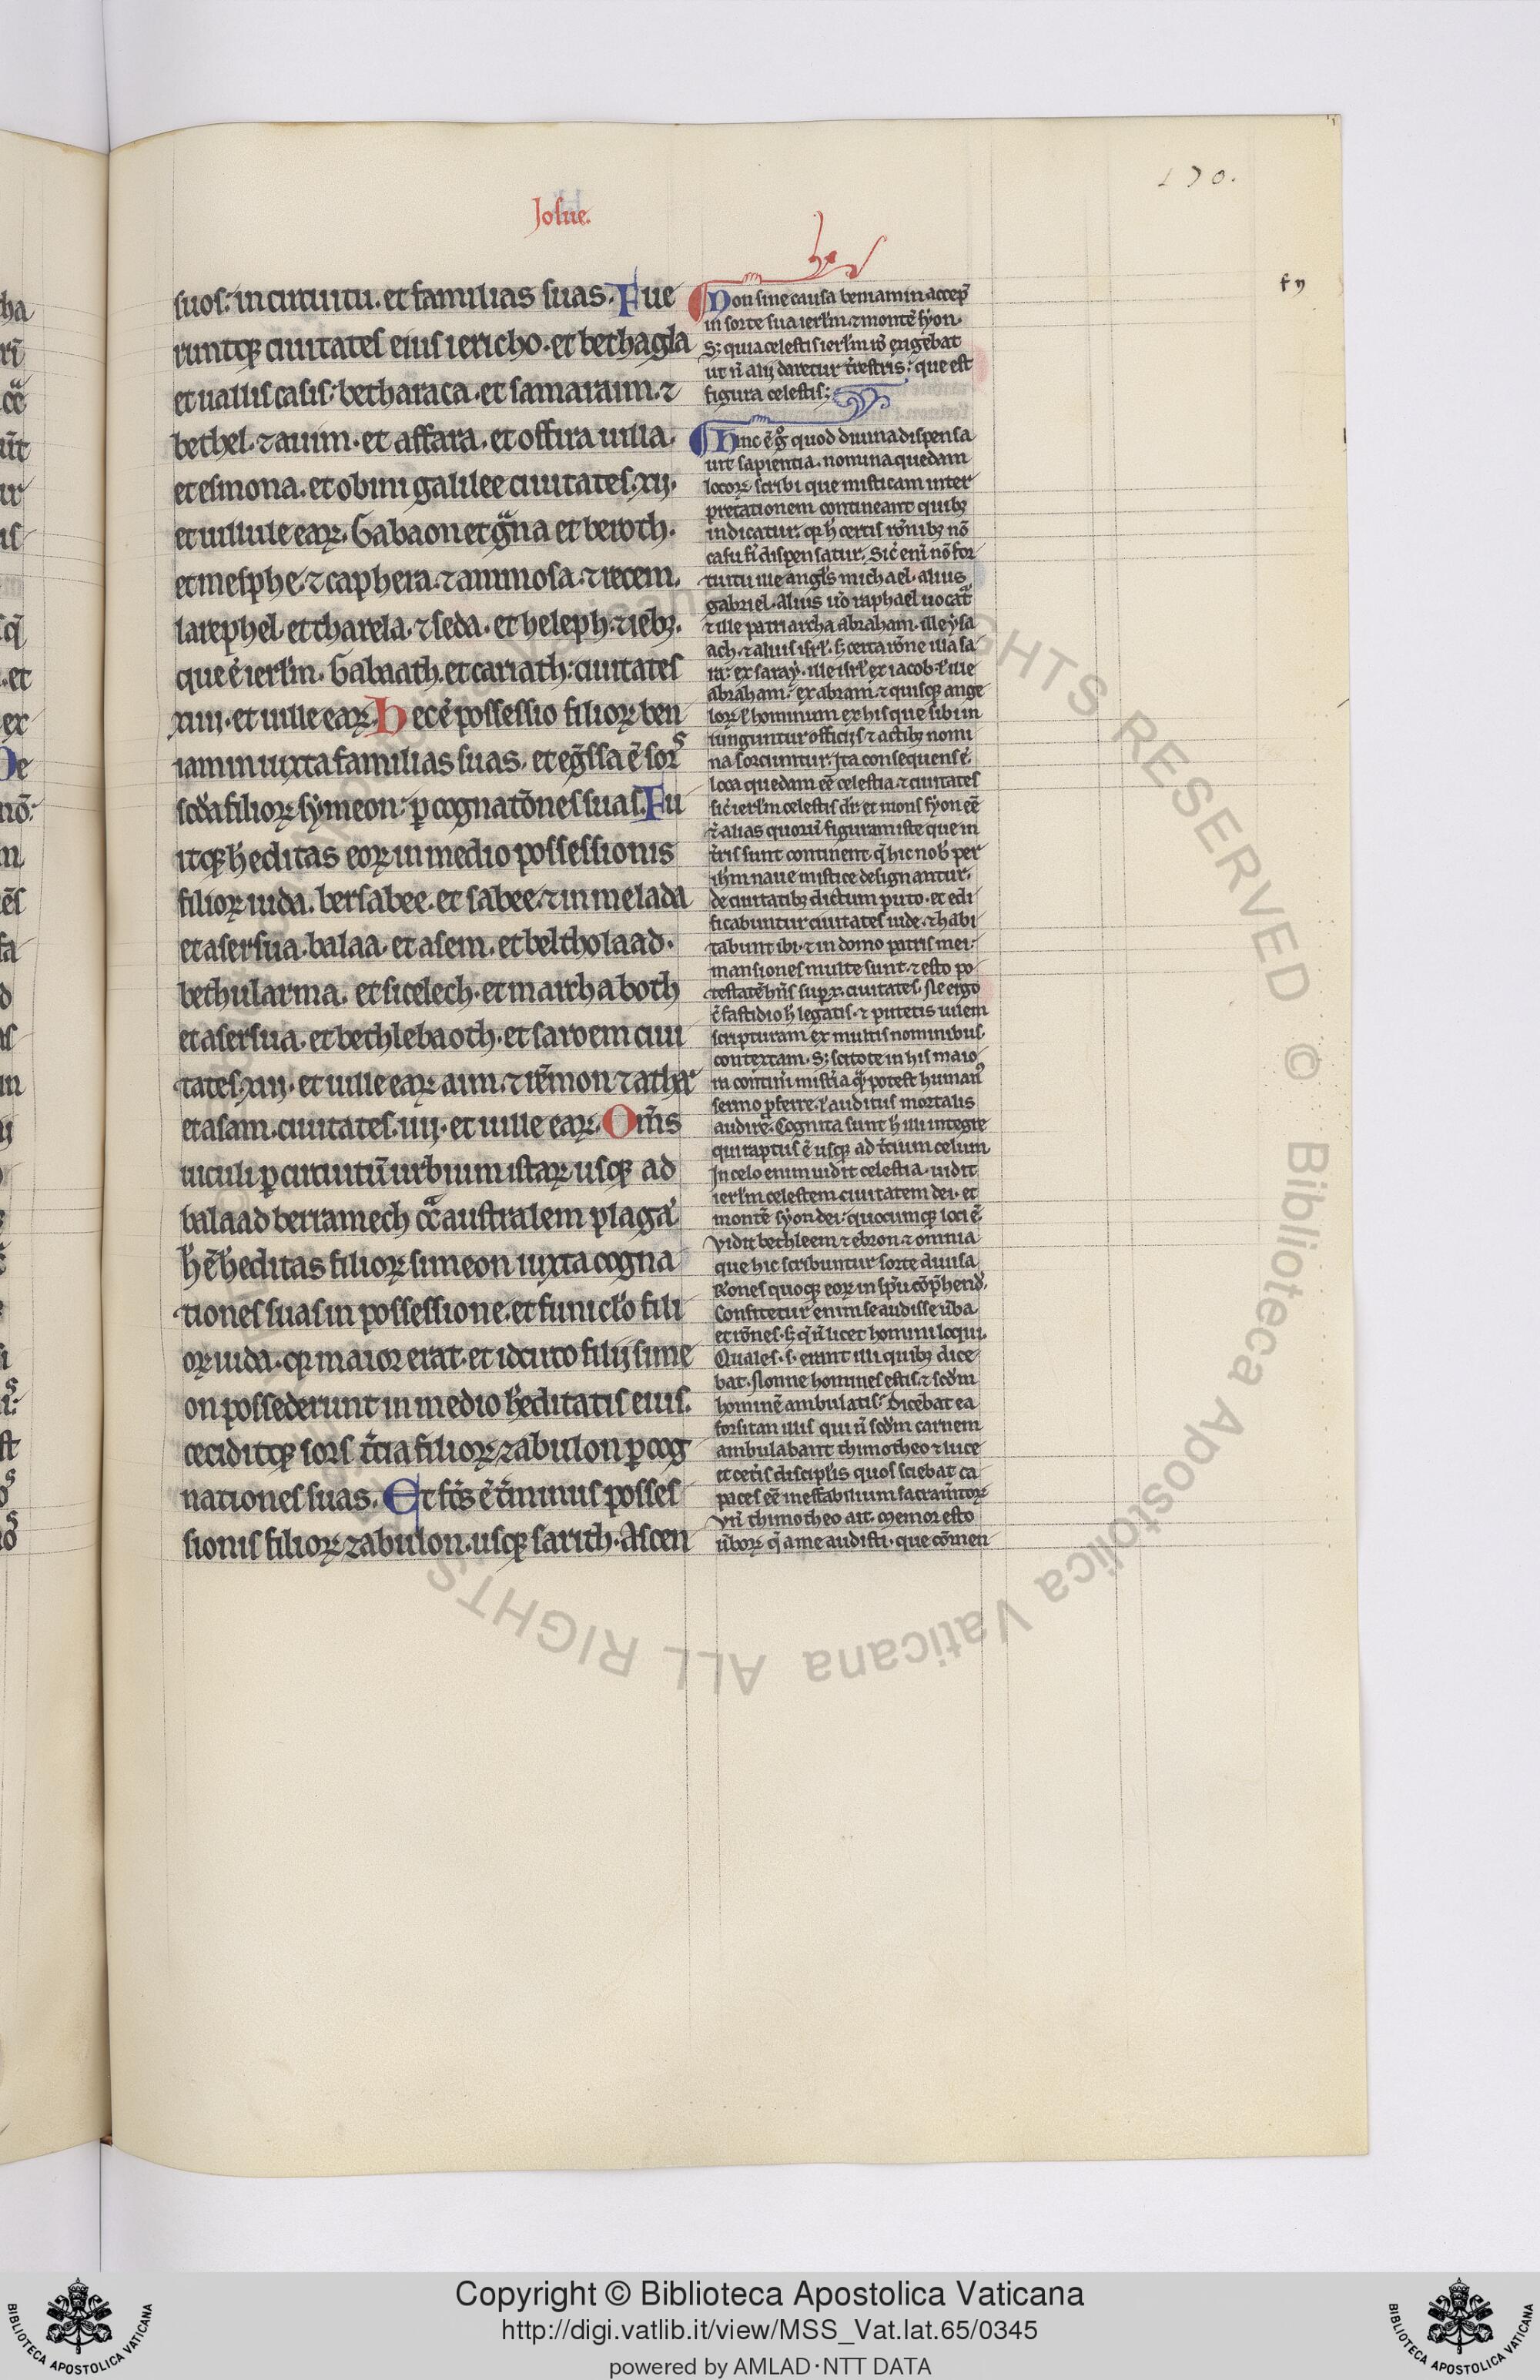 170.
Josue.
suos. in circuitu. et familias suas. Fue
runtq; ciuitates eius iericho. et bethagla
et uallis casis. betharaca. et samaraim. ⁊
bethel. ⁊ auim. et affara. et offira uilla.
et esmona. et obini galilee ciuitates. xij.
et uillule eaꝝ. Gabaon et gͣma et beroth.
et mesphe. ⁊ caphera. ⁊ ammosa. ⁊ recem.
larephel. et tharela. ⁊ seda. et heleph. ⁊ iebꝫ.
que ē ierl̄m. Gabaath. et cariath. ciuitates
xiiii. et uille eaꝝ. Hec ē possessio filioꝝ ben
iamin iuxta familias suas. et eg̃ssa ē sors
scd̄a filioꝝ symeon. ꝑ cognatōnes suas. Fu
itq; h̄editas eoꝝ in medio possessionis
filioꝝ iuda. bersabee. et sabee. ⁊ in melada
et asersua. balaa. et asem. et beltholaad.
bethularma. et sicelech. et marchaboth
et asersua. et bethlebaoth. et saroem ciui
tates. xiij. et uille eaꝝ aim. ⁊ rēmon ⁊ athar
et asam. ciuitates. iiij. et uille eaꝝ. Om̄s
uiculi ꝑ circuitū urbium istaꝝ usq; ad
balaad berramech cͣ australem plagā
h̄ ē h̄editas filioꝝ simeon iuxta cogna
tiones suas in possessione. et funicl̄o fili
oꝝ iuda. qꝛ maior erat. et idcirco filij sime
on possederunt in medio h̄editatis eius.
ceciditq; sors t̄cia filioꝝ zabulon ꝑ cog
nationes suas. Et fc̄s ē t̄minus posses
sionis filioꝝ zabulon. usq; sarith. Ascen
Non sine causa beniamin accep̄
in sorte sua ierl̄m. ⁊ montē syon.
S; quia celestis ierl̄m rō exigebat
ut n̄ alij daretur t̄restris. que est
figura celestis;
Hinc ē gͦ quod diuina dispensa
uit sapientia. nomina quedam
locoꝝ scribi que misticam inter
pretationem contineant quibꝫ
indicatur. qꝛ h̄ certis rōnibꝫ nō
casu fr̄i dispensatur. Sic̄ enī nō for
tuitu ille angl̄s michael. alius
gabriel. Alius ūo raphael uocatͬ
⁊ ille patriarcha abraham. ille ysa
ach. ⁊ alius isrl̄. s; certa rōne illa sa
ra. ex saray. ille isrl̄ ex iacob. l̄ ille
abraham. ex abram. ⁊ quisq; ange
loꝝ l̄ hominum ex his que sibi in
iunguntur officijs ⁊ actibꝫ nomi
na sorciuntur. Ita consequens ē.
loca quedam ēē celestia. ⁊ ciuitates
sic̄ ierl̄m celestis dr̄. et mons syon ēē
⁊ alias quoꝝ figuram iste que in
t̄ris sunt continent. q̄ hic nob̄ per
ih̄m naue mistice designantur.
de ciuitatibꝫ dictum puto. et edi
ficabuntur ciuitates iude. ⁊ habi
tabunt ibi. ⁊ in domo patris mei.
mansiones multe sunt. ⁊ esto po
testatē hn̄s sup̄ x. ciuitates. Ne ergo
c̄ fastidio h̄ legatis. ⁊ putetis uilem
scripturam ex multis nominibus
contextam. S; scitote in his maio
ra contin̄i mist̄ia q̄ potest humanꝰ
sermo p̄ferre. l̄ auditus mortalis
audire. Cognita sunt h̄ illi integre
qui raptus ē usq; ad t̄cium celum
In celo enim uidit celestia. uidit
ierl̄m celestem ciuitatem dei. et
montē syon dei. quocumq; loci ē.
Vidit bethleem ⁊ ebron. ⁊ omnia
que hic scribuntur sorte diuisa
Rōnes quoq; eoꝝ in sp̄u cōp̄hend̄.
Confitetur enim se audisse ūba
et rōnes. s; q̄ n̄ licet homini loqui.
Quales. s. erant illi quibꝫ dice
bat. Nonne homines estis. ⁊ scd̄m
hominē ambulatis. Dicebat ea
forsitan illis qui n̄ scd̄m carnem
ambulabant thimotheo ⁊ luce
et cet̄is discipl̄is quos sciebat ca
paces ēē ineffabilium sacram̄toꝝ
Vn̄ thimotheo ait. Memor esto
ūboꝝ q̄ a me audisti. que cōmen
Copyright © Biblioteca Apostolica Vaticana
http://digi.vatlib.it/view/MSS_Vat.lat.65/0345
powered by AMLAD·NTT DATA